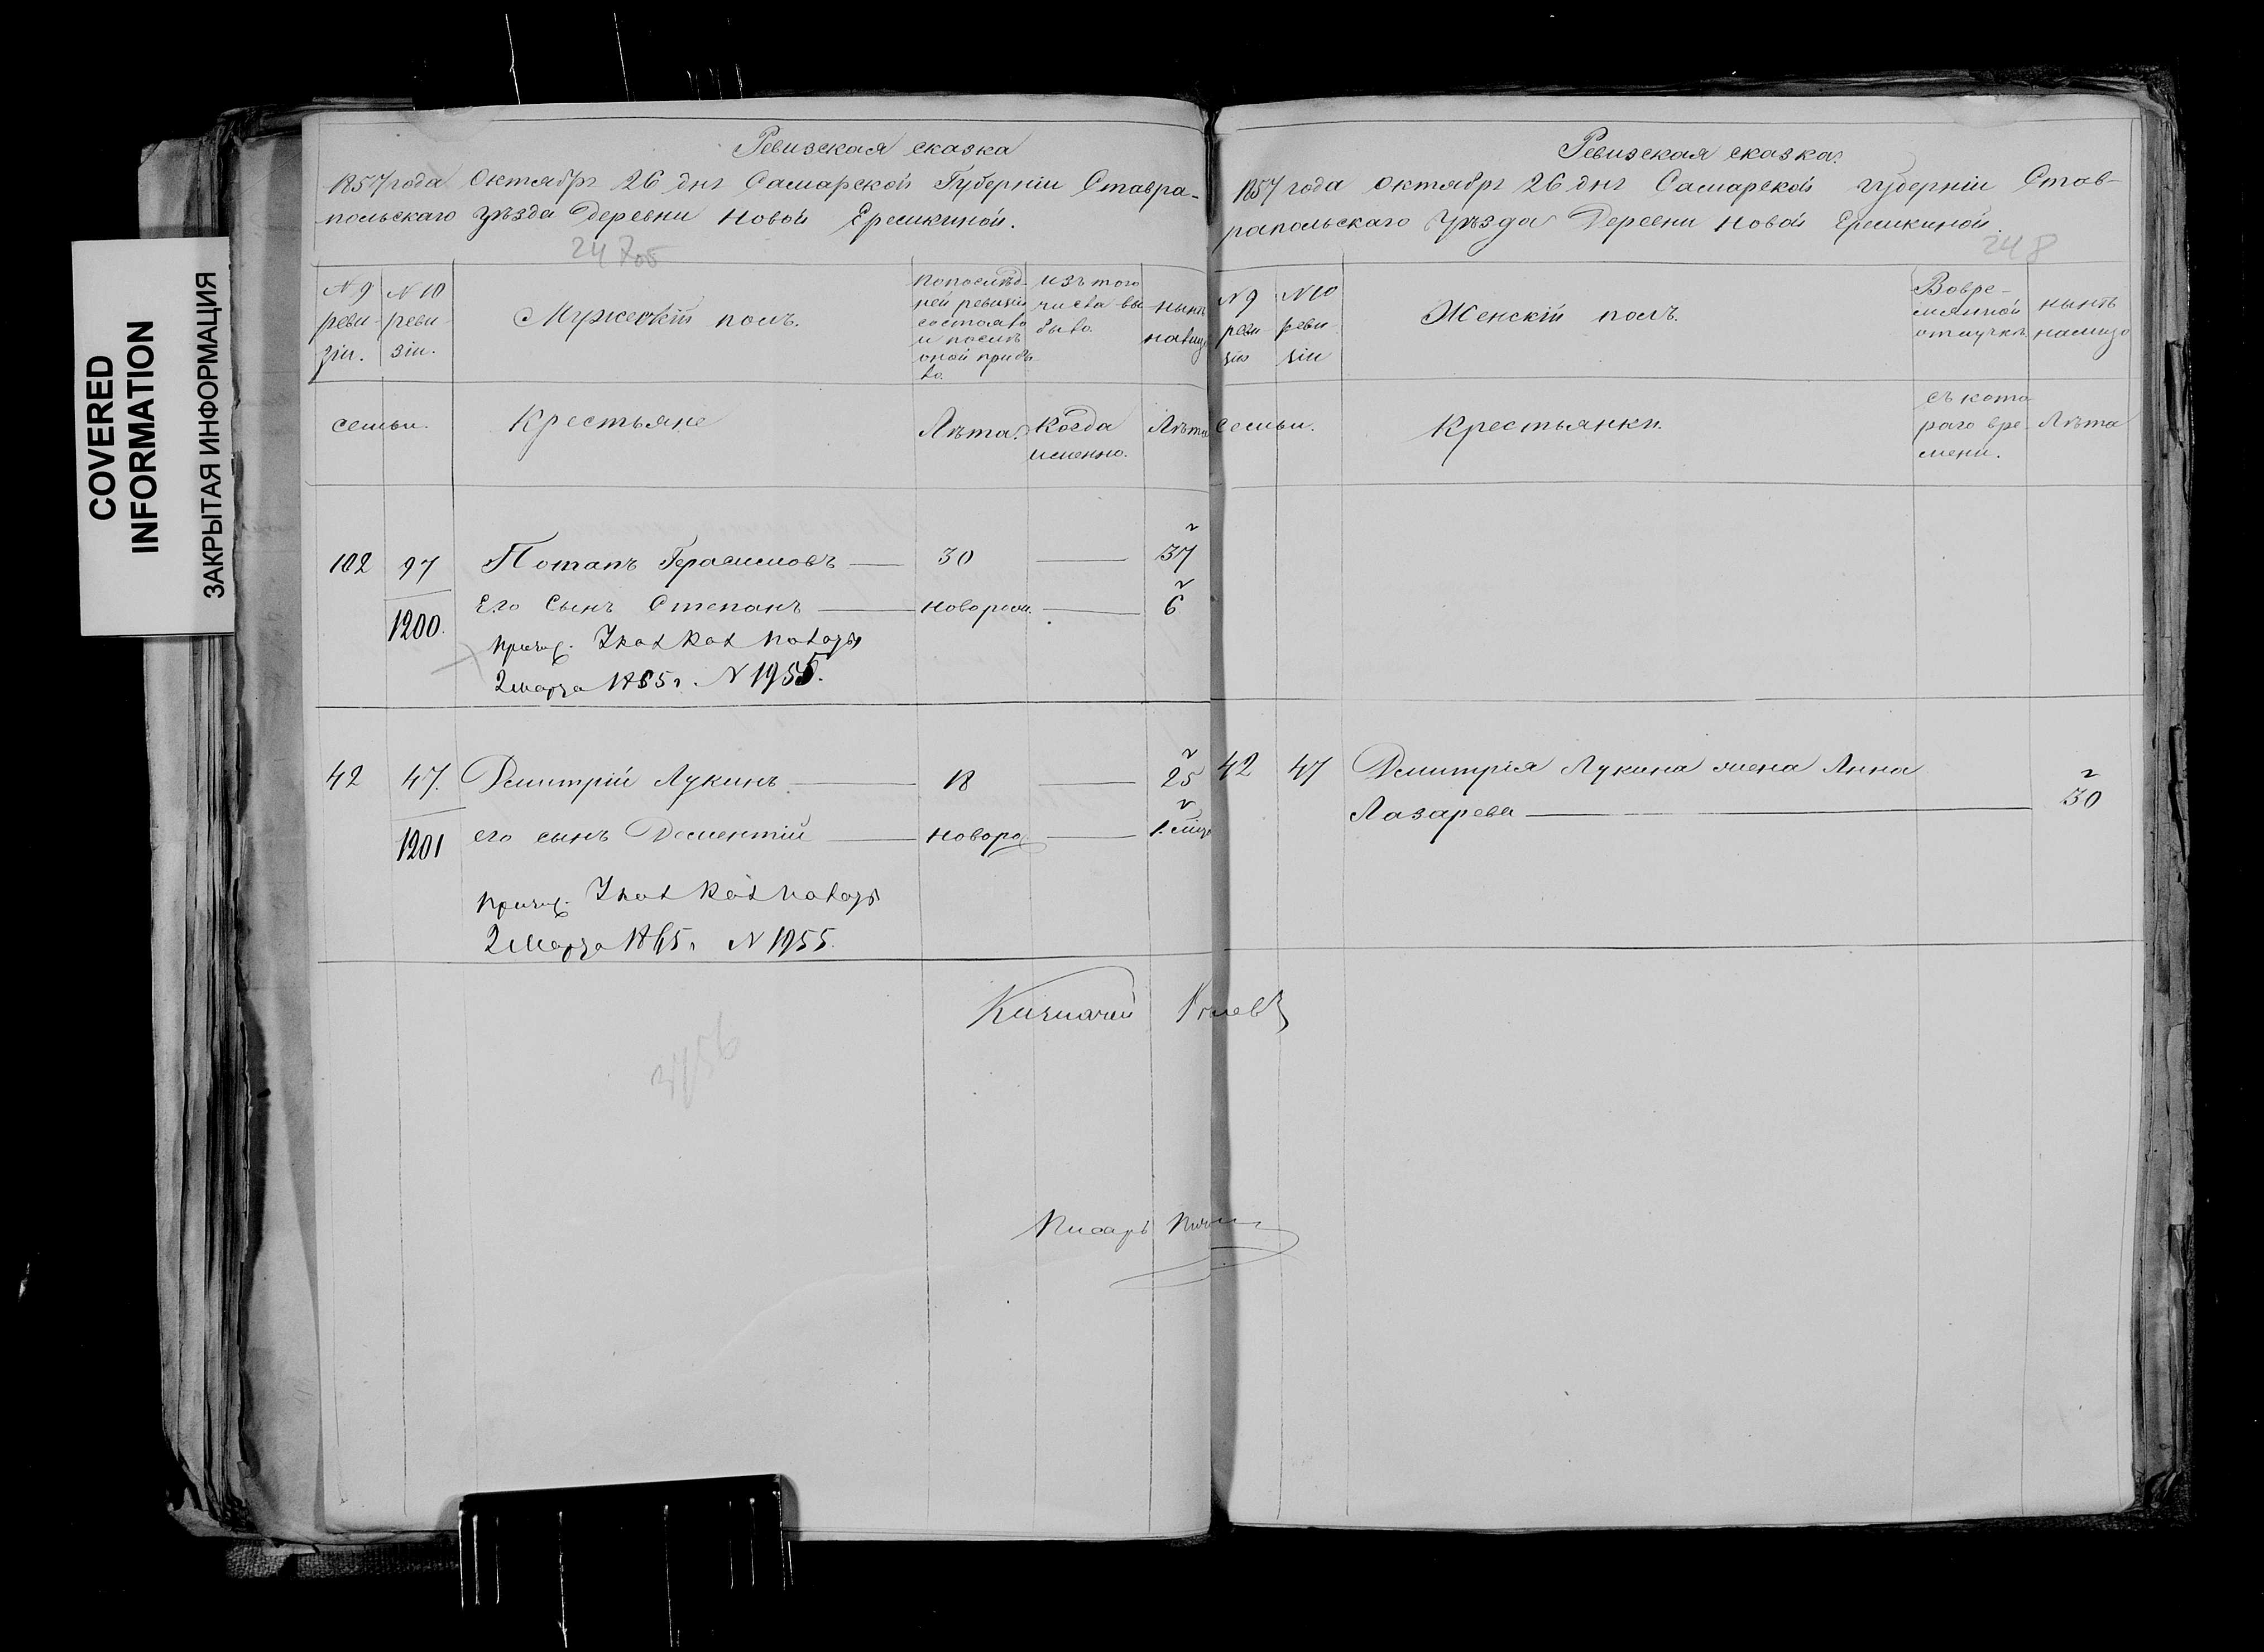 COVERED
INFORMATION
ЗАКРЫТАЯ ИНФОРМАЦИЯ
Ревизская сказка
1857 года Октября 26 дня Самарской Губернии Ставра-
польскаго уѣзда Деревни Новой Еремкиной.
247 об
№ 9 реви- зiи.
№ 10 реви- зiи.
Мужескiй полъ.
По послѣд- ней ревизiи состояло и послѣ оной прибы- ло.
Изъ того числа вы- было.
Нынѣ на лицо
семьи.
Крестьяне
Лѣта.
Когда именно.
Лѣта
102 97 Потапъ Герасимовъ — 30 — 37
1200. Его Сынъ Степанъ — новорож. — 6
причис. Указ Каз Палаты
2 марта 1865 г. № 1955.
42 47. Дмитрiй Лукинъ — 18 — 25
1201 его сынъ Дементiй — новоро — 1. мѣс
причис. Указ Каз Палаты
2 Марта 1865 г. № 1955.
3756
Писарь
Ревизская сказка.
1857 года октября 26 дня Самарской губернiи Став-
рапольскаго Уѣзда Деревни Новой Еремкиной.
248
№ 9 реви зiи
№ 10 реви зiи
Женскiй полъ.
Во вре- мянной отлучкѣ
нынѣ на лицо
семьи.
Крестьянки.
съ кото раго вре- мени.
Лѣта
42 47 Дмитрiя Лукина жена Анна
Лазарева — 30